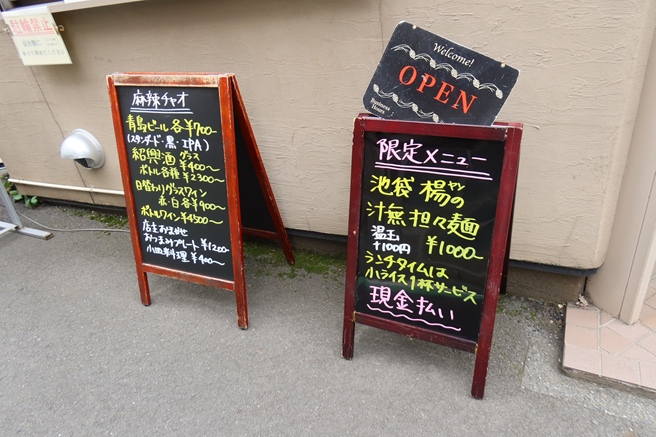 駐輪禁止
麻辣チャオ
青島ビール各¥700〜
(スタンダード・黒・IPA)
紹興酒 グラス
¥400〜
ボトル各種¥2300〜
日替わりグラスワイン
赤・白各¥400〜
ボトルワイン¥4500〜
店主おまかせ
おつまみプレート¥1200〜
小皿料理¥400〜
Welcome!
OPEN
Business
Hours
限定メニュー
池袋 楊ヤンの
汁無担々麺
温玉
+100円
¥1000〜
ランチタイムは
小ライス1杯サービス
現金払い